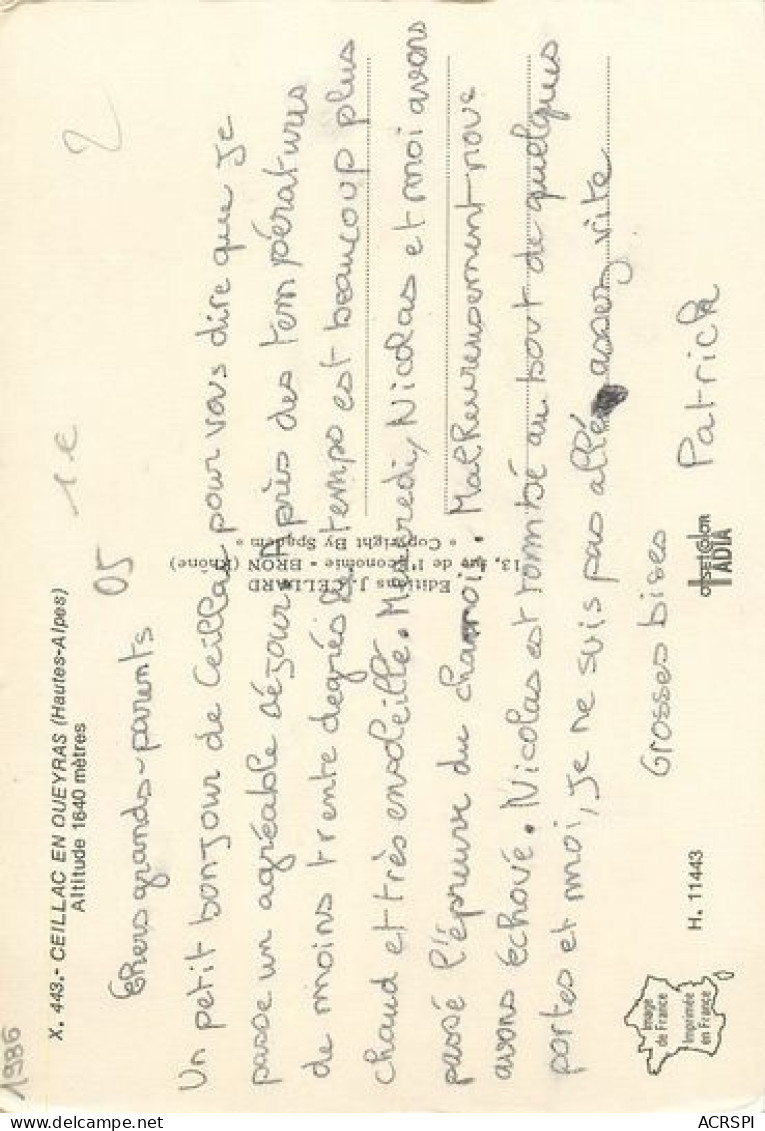 1986
X. 443.- CEILLAC EN QUEYRAS (Hautes-Alpes)
Altitude 1640 mètres
05
1 €
2
Chers grands-parents
Un petit bonjour de Ceillac pour vous dire que je
passe un agréable séjour. Après des températures
de moins trente degrés le temps est beaucoup plus
chaud et très ensoleillé. Mercredi, Nicolas et moi avons
passé l'épreuve du chamois. Malheureusement nous
avons échoué. Nicolas est tombé au bout de quelques
portes et moi, je ne suis pas allé assez vite
Grosses bises
Patrick
Editions J. CELLARD
13, rue de l'Economie - BRON (Rhône)
° Copyright By Spadem °
Image
de France
Imprimée
en France
H. 11443
OFFSET COLOR
IADIA
ACRSPI